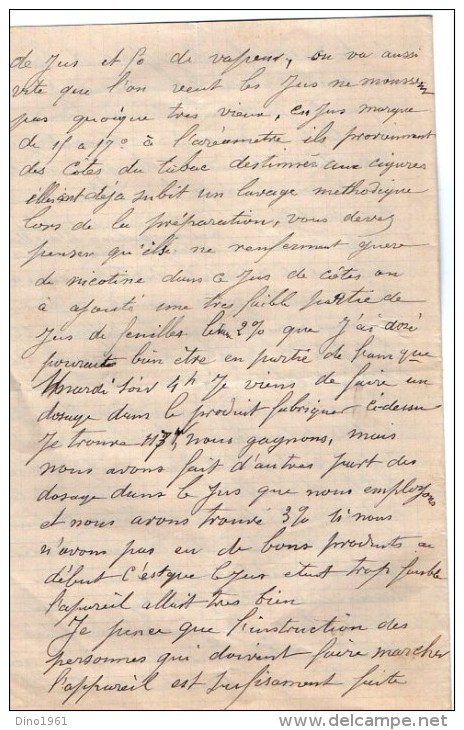 de Jus et 50 de vapeur, on va aussi
vite que l'on veut les Jus ne moussent
pas quoique tres vieux, ces Jus marque
de 15 a 17° à l'aréometre ils proviennent
des Côtes du tabac destinées aux cigares
déja subit un lavage methodique
lors de la préparation, vous devez
penser qu'ils ne renferment guere
de nicotine dans ce Jus de côtes on
à ajouté une tres faible partie de
Jus de feuilles 2% que J'ai dosé
bien être en partie de
mardi soir 4h Je viens de faire un
dosage dans le produit fabriquer cidessu
Je trouve nous gagnons, mais
nous avons fait d'autres part des
dosage dans le Jus que nous employons
et nous avons trouvé 3% si nous
n'avons pas eu de bons produits au
début c'est que le Jus etait trop faible
l'appareil allait tres bien
Je pence que l'instruction des
personnes qui doivent faire marcher
l'appareil est sufisament faite
Dino1961